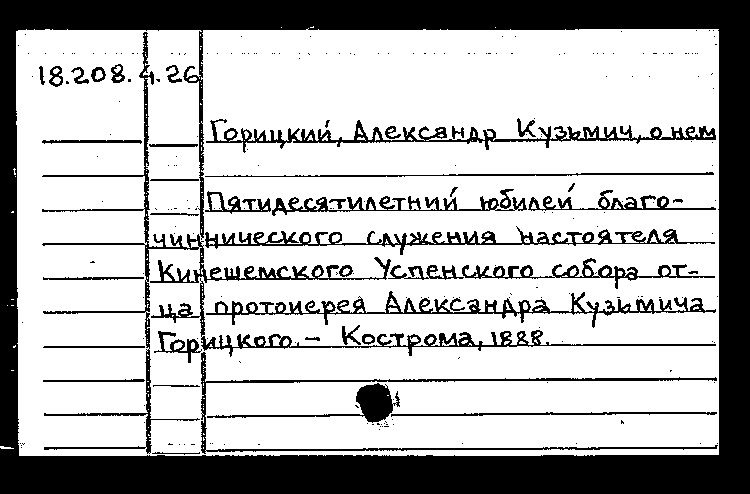 18.208.4.26
Горицкий, Александр Кузьмич, о нем
Пятидесятилетний юбилей благо-
чиннического служения настоятеля
Кинешемского Успенского собора от-
ца протоиерея Александра Кузьмича
Горицкого. – Кострома, 1888.